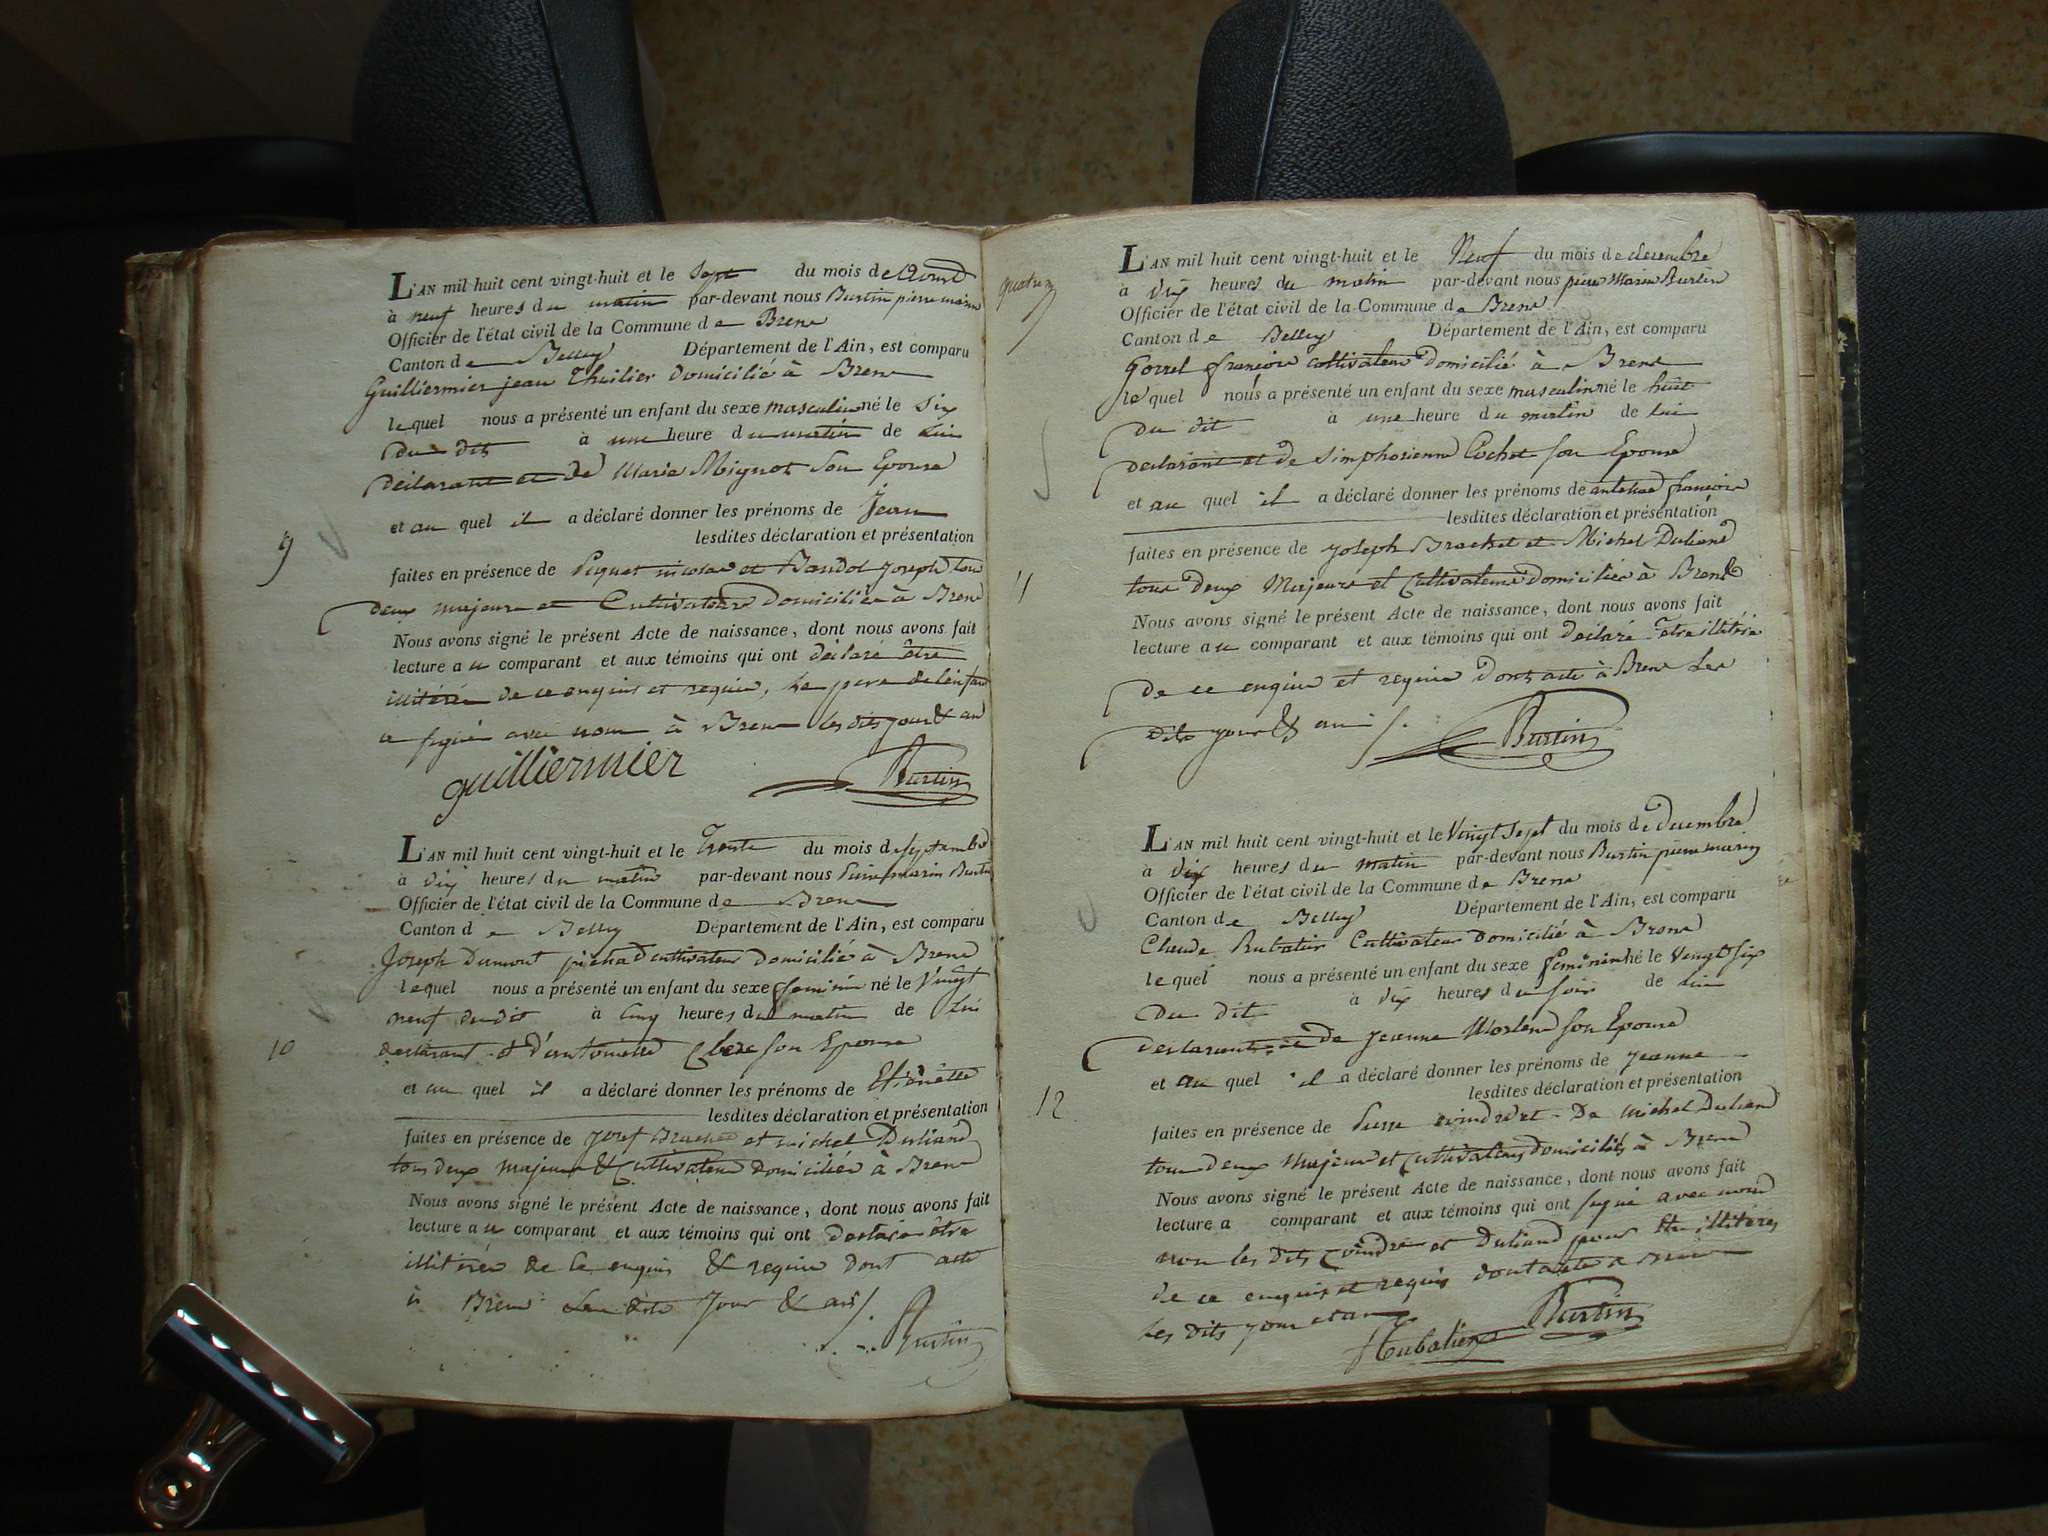 L'AN mil huit cent vingt-huit et le Sept du mois de Aoust
à neuf heures du matin par-devant nous Burtin pierre marin
Officier de l'état civil de la Commune de Bren
Canton de Belley Département de l'Ain, est comparu
Guilliermier jean Thuilier domicilié à Bren
lequel nous a présenté un enfant du sexe masculin né le six
du dit à une heure du matin de lui
déclarant et de Marie Mignot son Epouse
et au quel il a déclaré donner les prénoms de Jean
lesdites déclaration et présentation
9
faites en présence de Piquet nicolas et Baudot joseph tous
deux majeurs et Cultivateurs domiciliés à Bren
Nous avons signé le présent Acte de naissance, dont nous avons fait
lecture au comparant et aux témoins qui ont déclaré être
illitérés de ce enquis et requis, le pere de l'enfant
a signé avec nous à Bren les dits jour & an
guilliermier Burtin
L'AN mil huit cent vingt-huit et le Trente du mois de septembre
à dix heures du matin par-devant nous Pierre marin Burtin
Officier de l'état civil de la Commune de Bren
Canton de Belley Département de l'Ain, est comparu
Joseph Dumont cultivateur domicilié à Bren
lequel nous a présenté un enfant du sexe feminin né le Vingt
neuf du dit à cinq heures du matin de lui
10
declarant et d'antoinette son Epouse
et au quel il a déclaré donner les prénoms de
lesdites déclaration et présentation
faites en présence de josef Brachet et michel Duliand
tous deux majeurs & Cultivateurs domiciliés à Bren
Nous avons signé le présent Acte de naissance, dont nous avons fait
lecture au comparant et aux témoins qui ont declaré être
illitérés de ce enquis & requis dont acte
à Bren les dits Jour & an
Burtin
quatre
L'AN mil huit cent vingt-huit et le Neuf du mois de decembre
à dix heures du matin par-devant nous pierre Marin Burtin
Officier de l'état civil de la Commune de Bren
Canton de Belley Département de l'Ain, est comparu
Gorrel françois cultivateur domicilié à Bren
lequel nous a présenté un enfant du sexe masculin né le huit
du dit à une heure du matin de lui
declarant et de Simphorienne Cochet son Epouse
et au quel il a déclaré donner les prénoms de anthelme françois
lesdites déclaration et présentation
faites en présence de joseph Brachet et Michel Duliand
11
tous deux Majeurs et Cultivateurs domiciliés à Bren
Nous avons signé le présent Acte de naissance, dont nous avons fait
lecture au comparant et aux témoins qui ont declaré etre illitérés
de ce enquis et requis dont acte à Bren Les
dits jour & an
Burtin
L'AN mil huit cent vingt-huit et le Vingt sept du mois de decembre
à dix heures du matin par-devant nous Burtin pierre marin
Officier de l'état civil de la Commune de Bren
Canton de Belley Département de l'Ain, est comparu
Claude Hubatier Cultivateur domicilié à Bren
lequel nous a présenté un enfant du sexe feminin né le Vingt six
du dit à dix heures du soir de lui
declarant et de Jeanne son Epouse
et au quel il a déclaré donner les prénoms de jeanne
lesdites déclaration et présentation
12
faites en présence de de michel Duliand
tous deux Majeurs et Cultivateurs domiciliés à Bren
Nous avons signé le présent Acte de naissance, dont nous avons fait
lecture a comparant et aux témoins qui ont signé avec nous
non les dits et Duliand pour etre illitérés
de ce enquis et requis dont acte a Bren
les dits jour et an
Hubatier Burtin